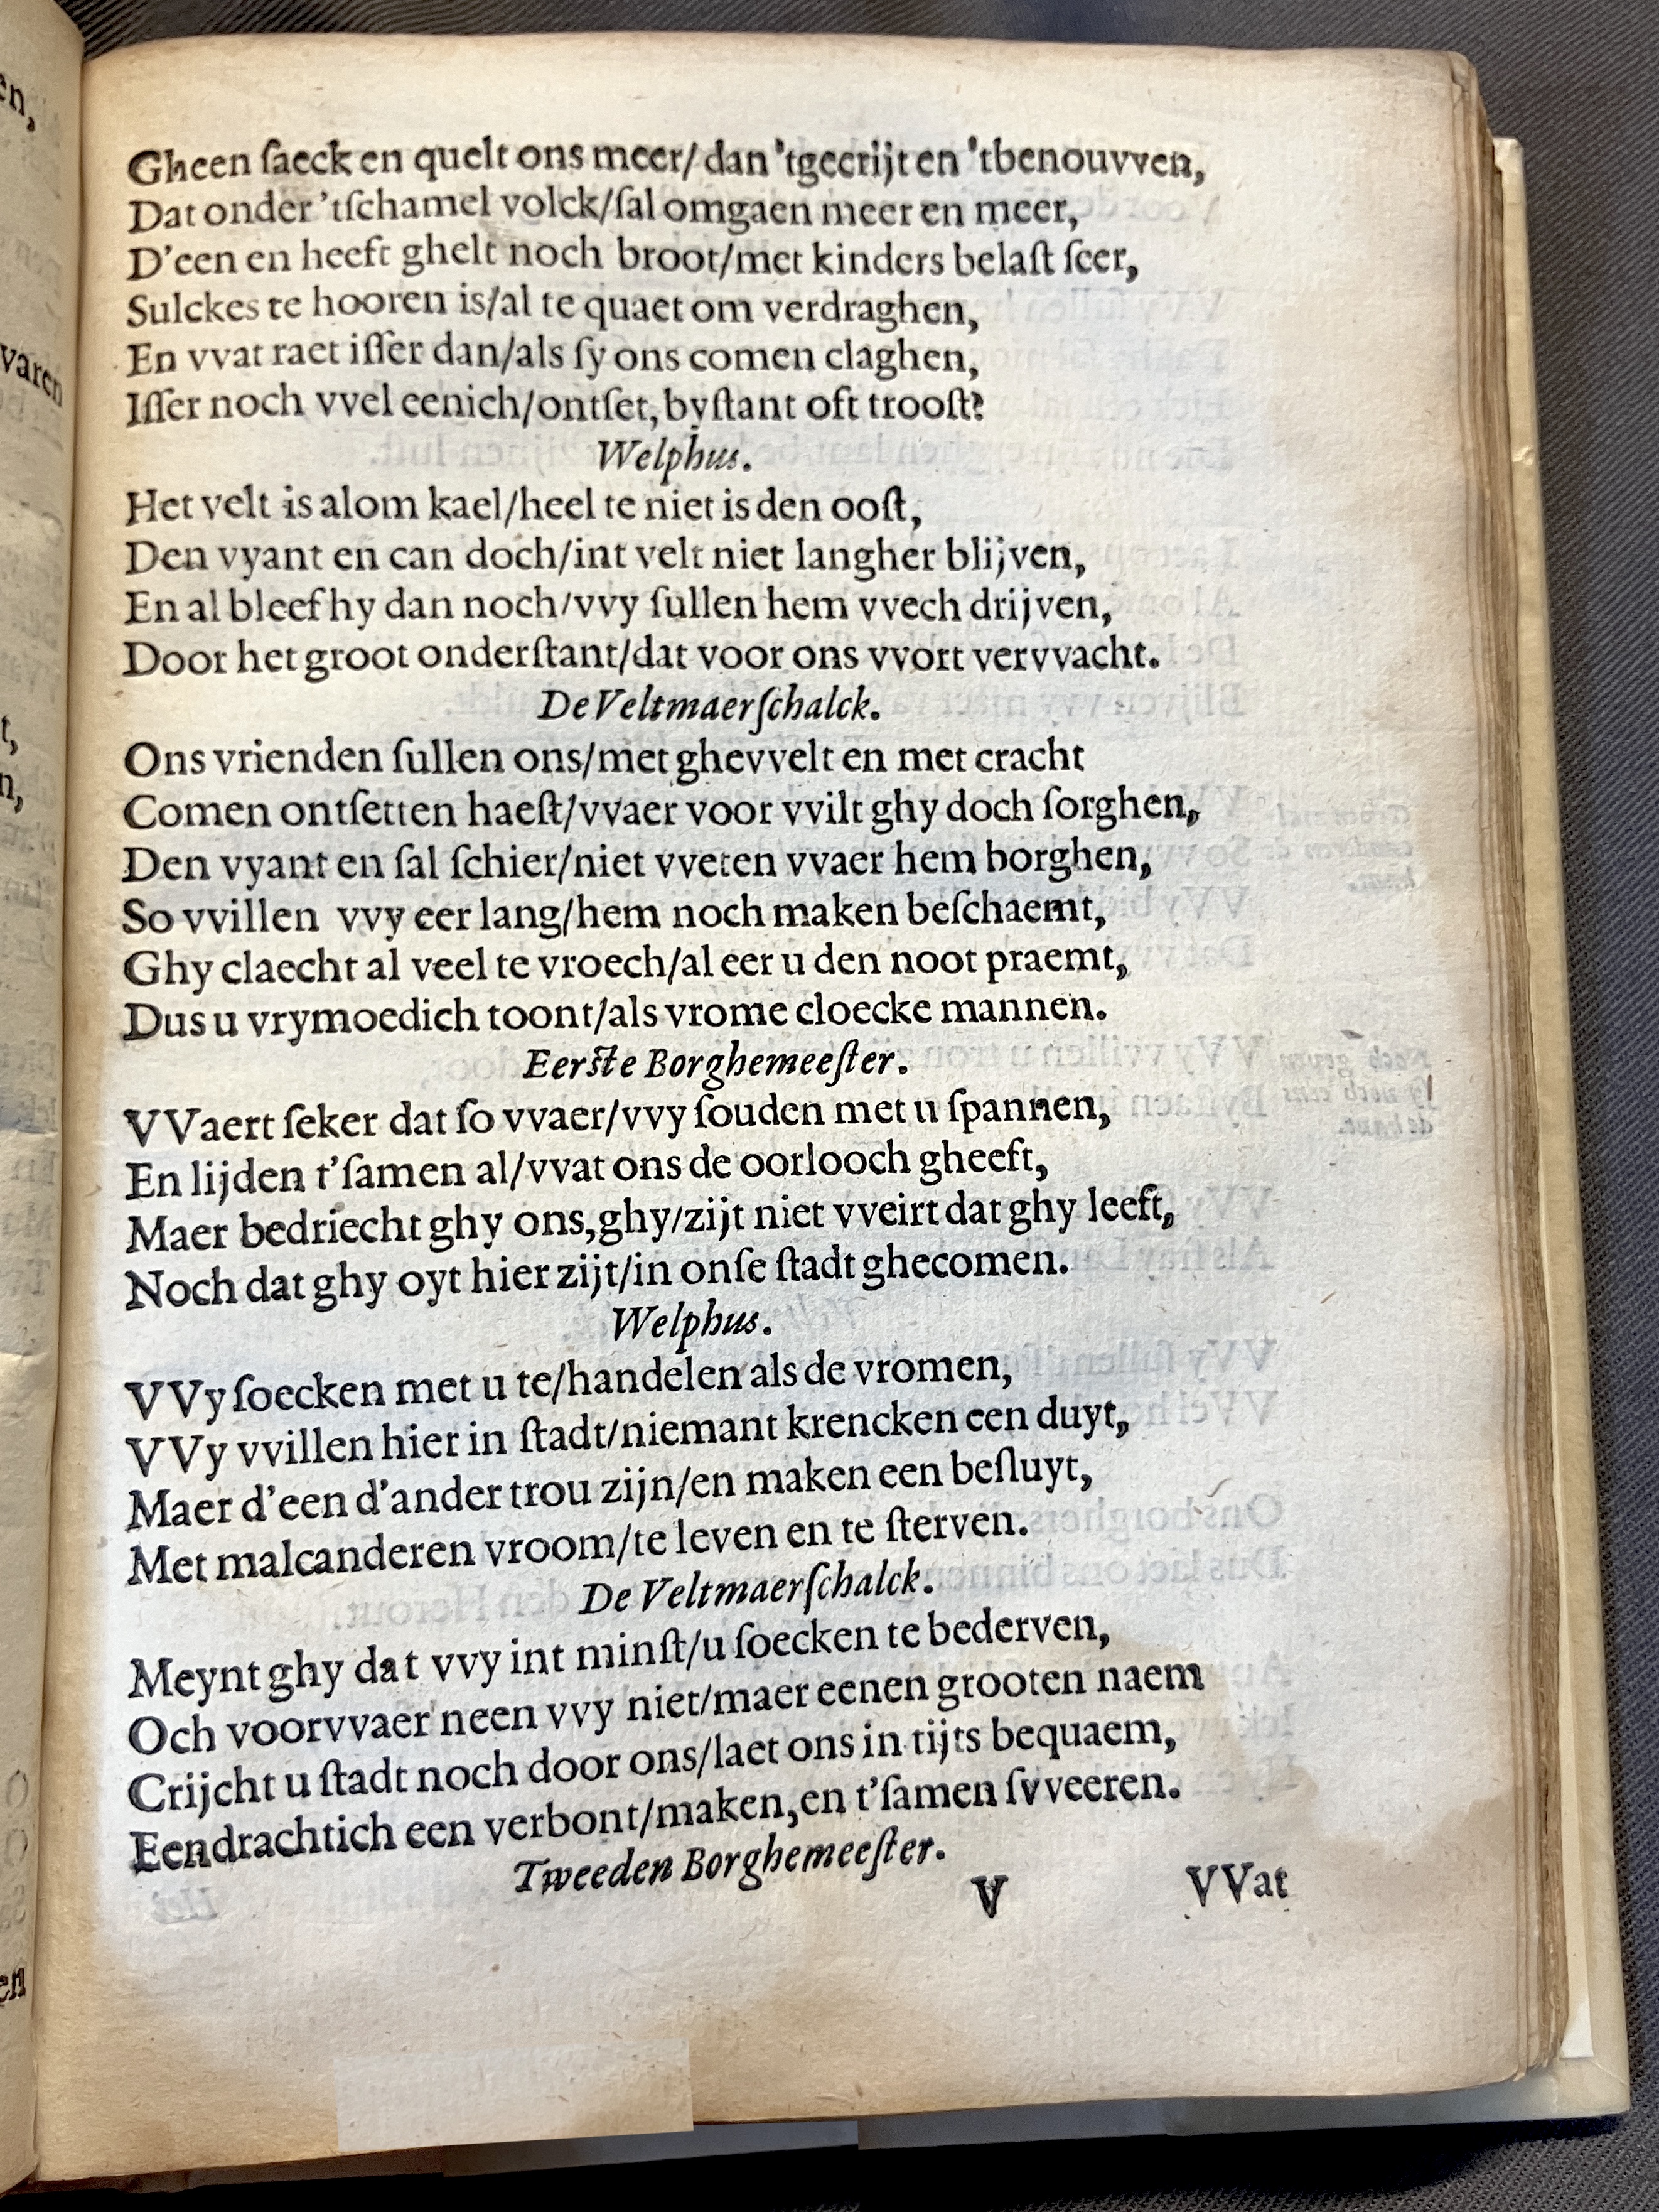 Gheen ſaeck en quelt ons meer/dan 'tgecrijt en 'tbenouvven,
Dat onder 'tſchamel volck/ſal omgaen meer en meer,
D'een en heeft ghelt noch broot/met kinders belaſt ſeer,
Sulckes te hooren is/al te quaet om verdraghen,
En vvat raet iſſer dan/als ſy ons comen claghen,
Iſſer noch vvel eenich/ontſet, byſtant oft trooſt?
Welphus.
Het velt is alom kael/heel te niet is den ooſt,
Den vyant en can doch/int velt niet langher blijven,
En al bleef hy dan noch/vvy ſullen hem vvech drijven,
Door het groot onderſtant/dat voor ons vvort vervvacht.
De Veltmaerſchalck.
Ons vrienden ſullen ons/met ghevvelt en met cracht
Comen ontſetten haeſt/vvaer voor vvilt ghy doch ſorghen,
Den vyant en ſal ſchier/niet vveten vvaer hem borghen,
So vvillen vvy eer lang/hem noch maken beſchaemt,
Ghy claecht al veel te vroech/al eer u den noot praemt,
Dus u vrymoedich toont/als vrome cloecke mannen.
Eerſte Borghemeeſter.
VVaert ſeker dat ſo vvaer/vvy ſouden met u ſpannen,
En lijden t'ſamen al/vvat ons de oorlooch gheeft,
Maer bedriecht ghy ons,ghy/zijt niet vveirt dat ghy leeft,
Noch dat ghy oyt hier zijt/in onſe ſtadt ghecomen.
Welphus.
VVy ſoecken met u te/handelen als de vromen,
VVy vvillen hier in ſtadt/niemant krencken een duyt,
Maer d'een d'ander trou zijn/en maken een beſluyt,
Met malcanderen vroom/te leven en te ſterven.
De Veltmaerſchalck.
Meynt ghy dat vvy int minſt/u ſoecken te bederven,
Och voorvvaer neen vvy niet/maer eenen grooten naem
Crijcht u ſtadt noch door ons/laet ons in tijts bequaem,
Eendrachtich een verbont/maken,en t'ſamen ſvveeren.
Tweeden Borghemeeſter.
V VVat